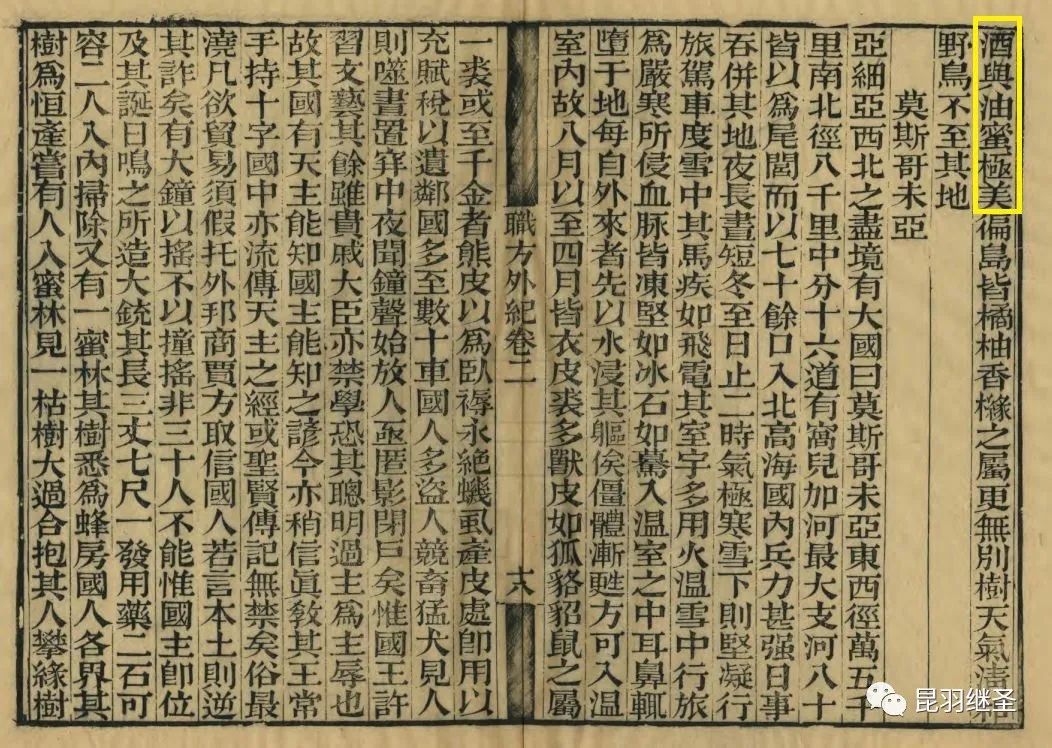 酒與油蜜極美偏島皆橘柚香櫞之屬更無別樹天氣清和
野鳥不至其地
莫斯哥未亞
亞細亞西北之盡境有大國曰莫斯哥未亞東西徑萬五千
里南北徑八千里中分十六道有窩兒加河最大支河八十
皆以爲尾閭而以七十餘口入北高海國內兵力甚强日事
吞併其地夜長晝短冬至日止二時氣極寒雪下則堅凝行
旅駕車度雪中其馬疾如飛電其室宇多用火溫雪中行旅
爲嚴寒所侵血脉皆凍堅如冰石如驀入溫室之中耳鼻輒
墮于地每自外來者先以水浸其軀俟僵體漸甦方可入溫
室內故八月以至四月皆衣皮裘多獸皮如狐貉貂鼠之屬
職方外紀卷二
十八
一裘或至千金者熊皮以爲臥褥永絶蟣虱產皮處卽用以
充賦稅以遺鄰國多至數十車國人多盜人競畜猛犬見人
則噬晝置穽中夜聞鐘聲始放人亟匿影閉戶矣惟國王許
習文藝其餘雖貴戚大臣亦禁學恐其聰明過主爲主辱也
故其國有天主能知國主能知之諺今亦稍信眞教其王常
手持十字國中亦流傳天主之經或聖賢傳記無禁矣俗最
澆凡欲貿易須假托外邦商賈方取信國人若言本土則逆
其詐矣有大鐘以搖不以撞搖非三十人不能惟國主卽位
及其誕日鳴之所造大銃其長三丈七尺一發用藥二石可
容二人入內掃除又有一蜜林其樹悉爲蜂房國人各界其
樹爲恒產嘗有人入蜜林見一枯樹大過合抱其人攀緣樹
昆羽继圣